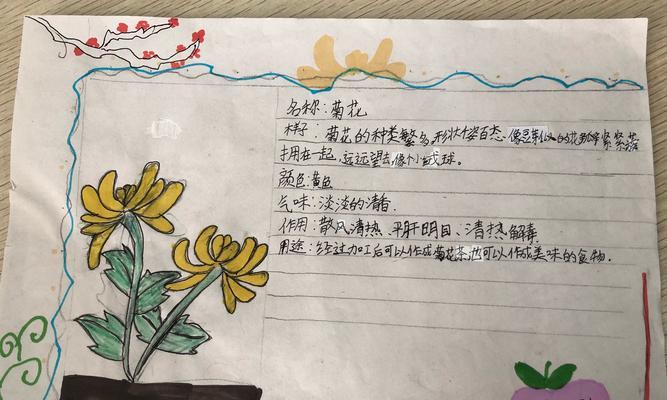 名称:菊花
样子:菊花的种类繁多,形状千姿百态,像豆芽似的花瓣紧紧蔟
拥在一起,远远望去像小绒球。
颜色:黄色
气味:淡淡的清香.
作用:散风清热、平肝明目、清热解毒
用途:经过加工后可以作成菊花茶也可以作成美味的食物.